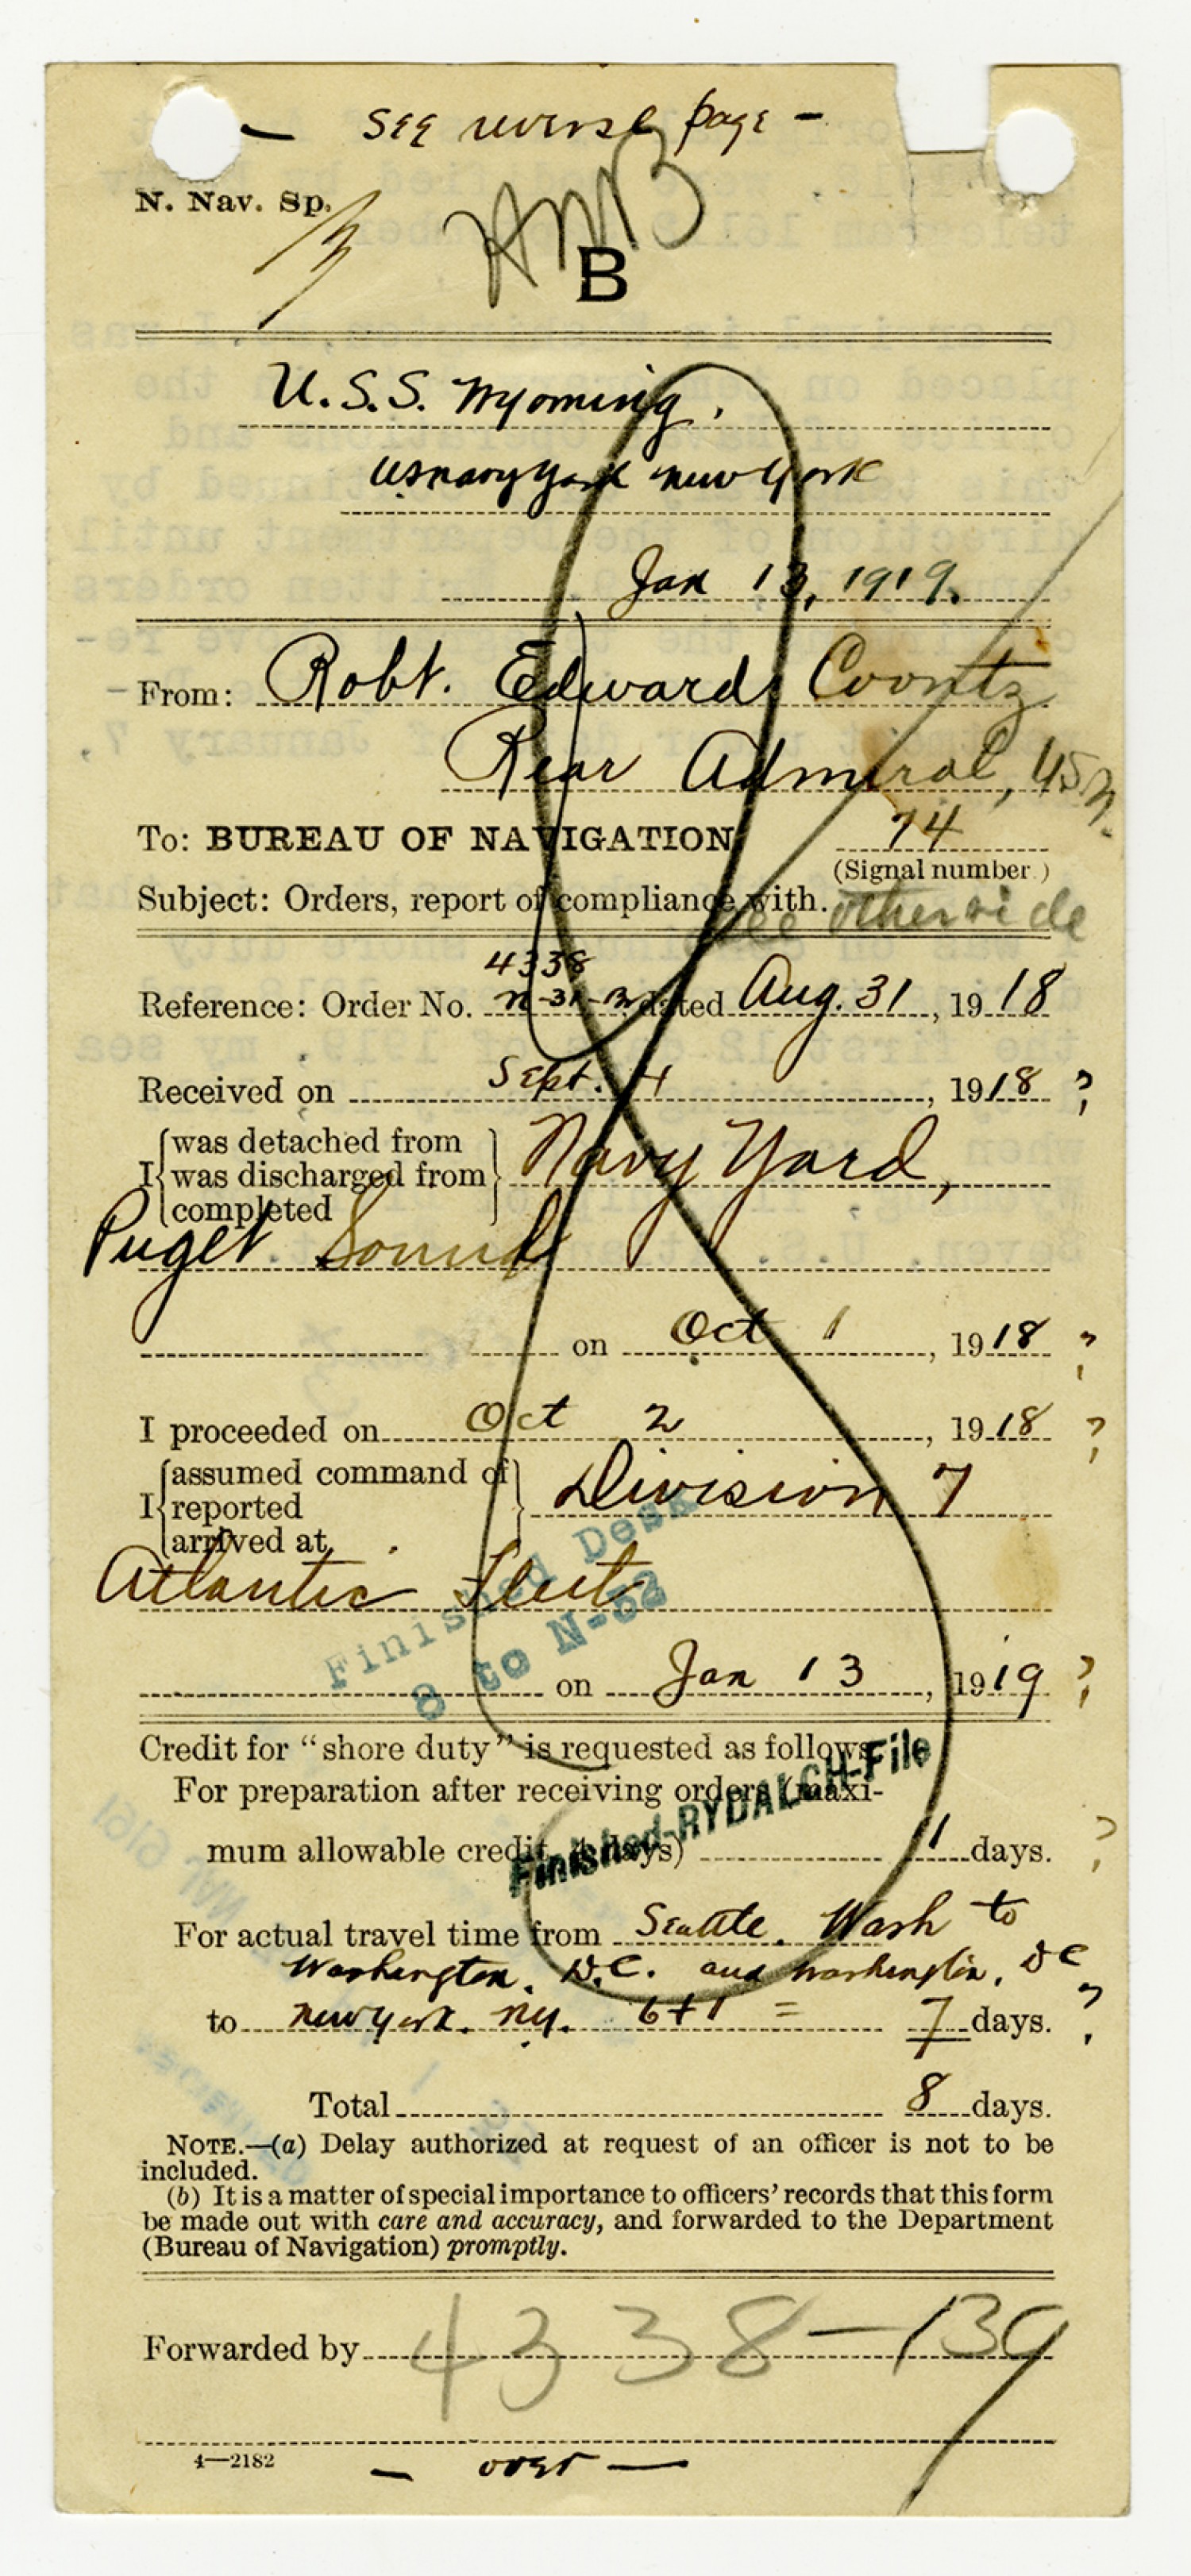 — see reverse page —
N. Nav. Sp.
B
U.S.S. Wyoming.
US navy yard new York
Jan 13, 1919.
From: Robt. Edward Coontz
Rear Admiral, USN.
To: BUREAU OF NAVIGATION 74
(Signal number )
Subject: Orders, report of compliance with. see other side
4338
Reference: Order No. N-31-Br, dated Aug. 31, 1918
Received on Sept. 4, 1918 ?
I {was detached from
was discharged from
completed} Navy Yard,
Puget Sound
on Oct 1, 1918 ?
I proceeded on Oct 2, 1918 ?
I {assumed command of
reported
arrived at} Division 7
Atlantic Fleet
Finished Desk
8 to N-52
on Jan 13, 1919 ?
Credit for “shore duty” is requested as follows
For preparation after receiving orders (maxi-
mum allowable credit, 4 days) 1 days. ?
Finished-RYDALCH-File
For actual travel time from Seattle. Wash to
Washington. D.C. and Washington. DC
to New York. NY. 6+1 = 7 days. ?
Total 8 days.
NOTE.—(a) Delay authorized at request of an officer is not to be
included.
(b) It is a matter of special importance to officers’ records that this form
be made out with care and accuracy, and forwarded to the Department
(Bureau of Navigation) promptly.
Forwarded by 4338-139
4—2182
— over —